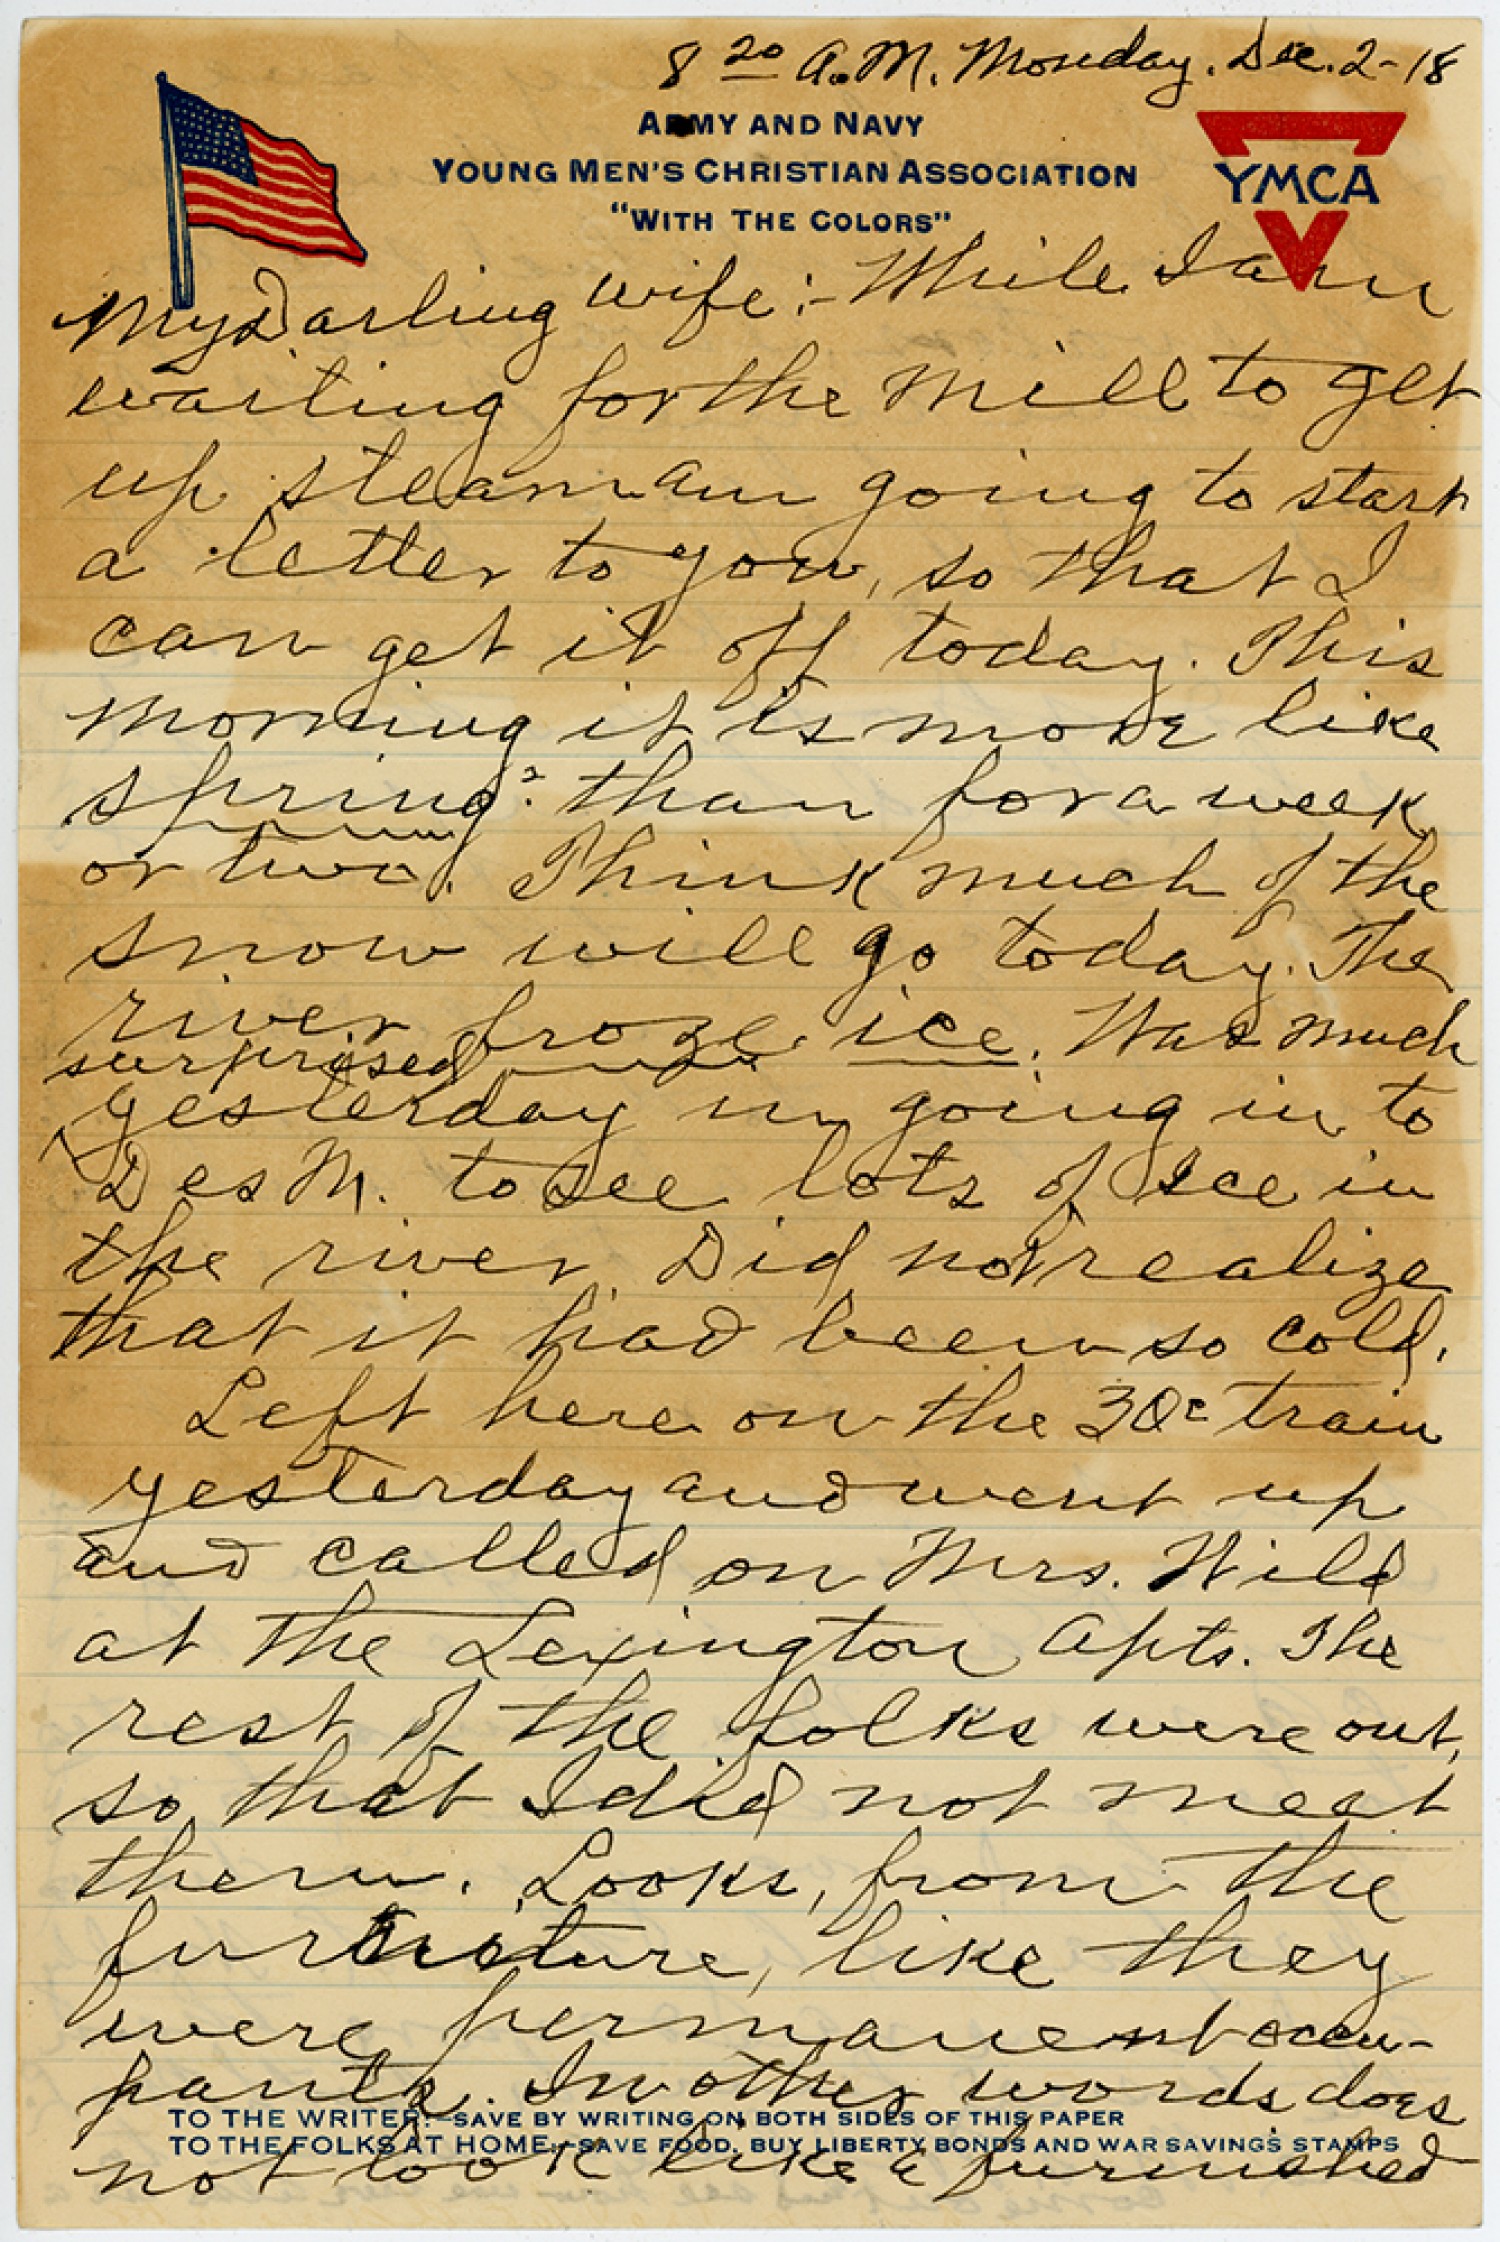 8 20 A.M. Monday. Dec. 2-18
ARMY AND NAVY
YOUNG MEN'S CHRISTIAN ASSOCIATION
"WITH THE COLORS"
YMCA
My Darling wife:- While I am
waiting for the mill to get
up steam am going to start
a letter to you, so that I
can get it off today. This
morning it is more like
spring than for a week
or two. Think much of the
snow will go today. The
river froze ice. Was much
surprised
yesterday in going in to
Des M. to see lots of ice in
the river. Did not realize
that it had been so cold.
Left here on the train
yesterday and went up
and called on Mrs. Wild
at the Lexington Apts. The
rest of the folks were out,
so that I did not meet
them. Looks, from the
furniture, like they
were permanent occu-
pants. In other words does
TO THE WRITER:-SAVE BY WRITING ON BOTH SIDES OF THIS PAPER
TO THE FOLKS AT HOME:-SAVE FOOD, BUY LIBERTY BONDS AND WAR SAVINGS STAMPS
not look like a furnished